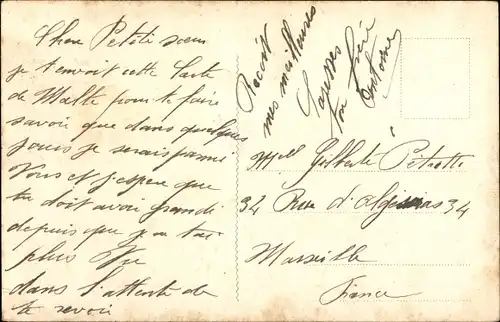 Chere Petite sœur
je t'envoit cette Carte
de Malte pour te faire
savoir que dans quelques
jours je serais parmi
Vous et j'espere que
tu doit avoir Grandi
depuis que je n t'ai
plus Vue
dans l'attente de
te revoir
Recoit
mes meilleures
Caresses
ton frère
Antoine
Mlle Gilberte Pétrotto
34 Rue d'Algérias 34
Marseille
France